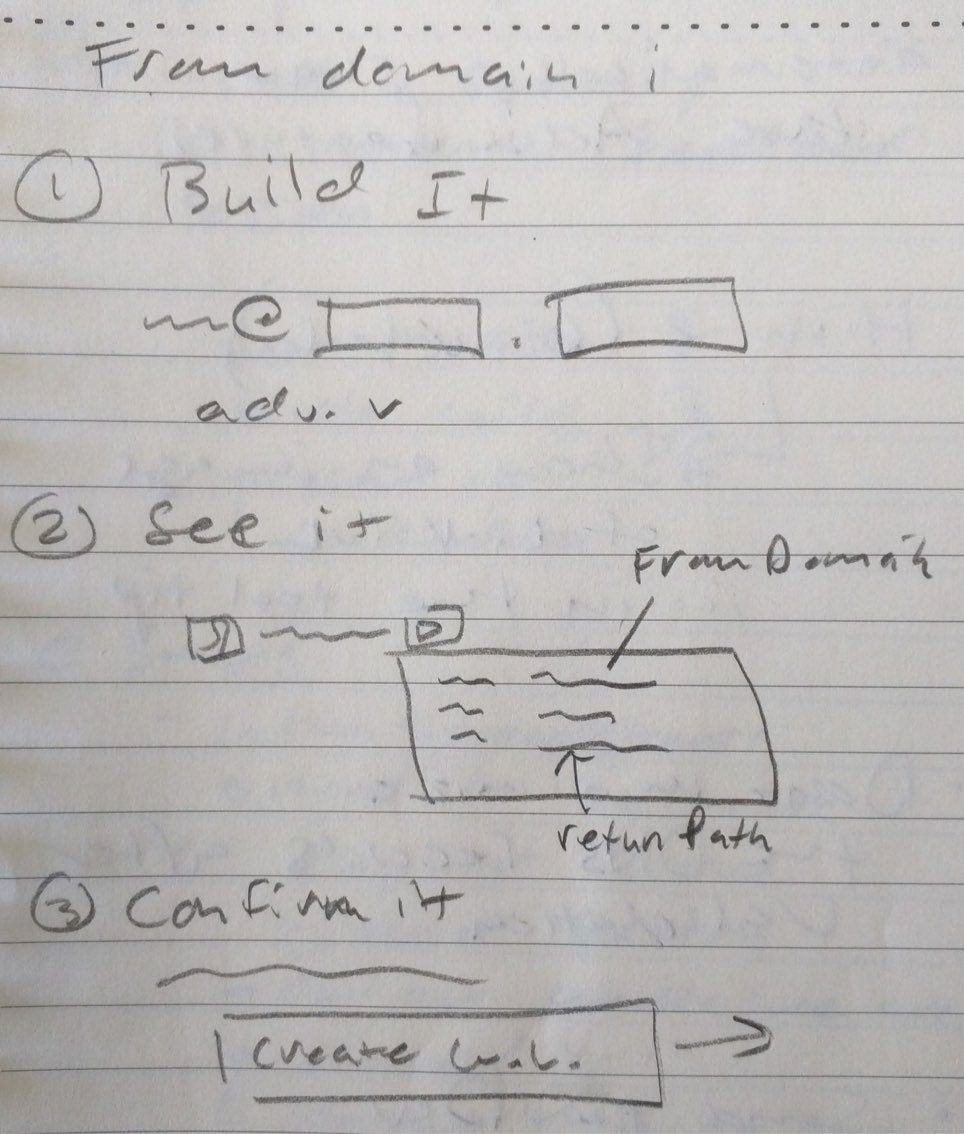 From domain i
① Build It
@ .
adv. v
② See it
From Domain
return Path
③ Confirm it
create w.l.